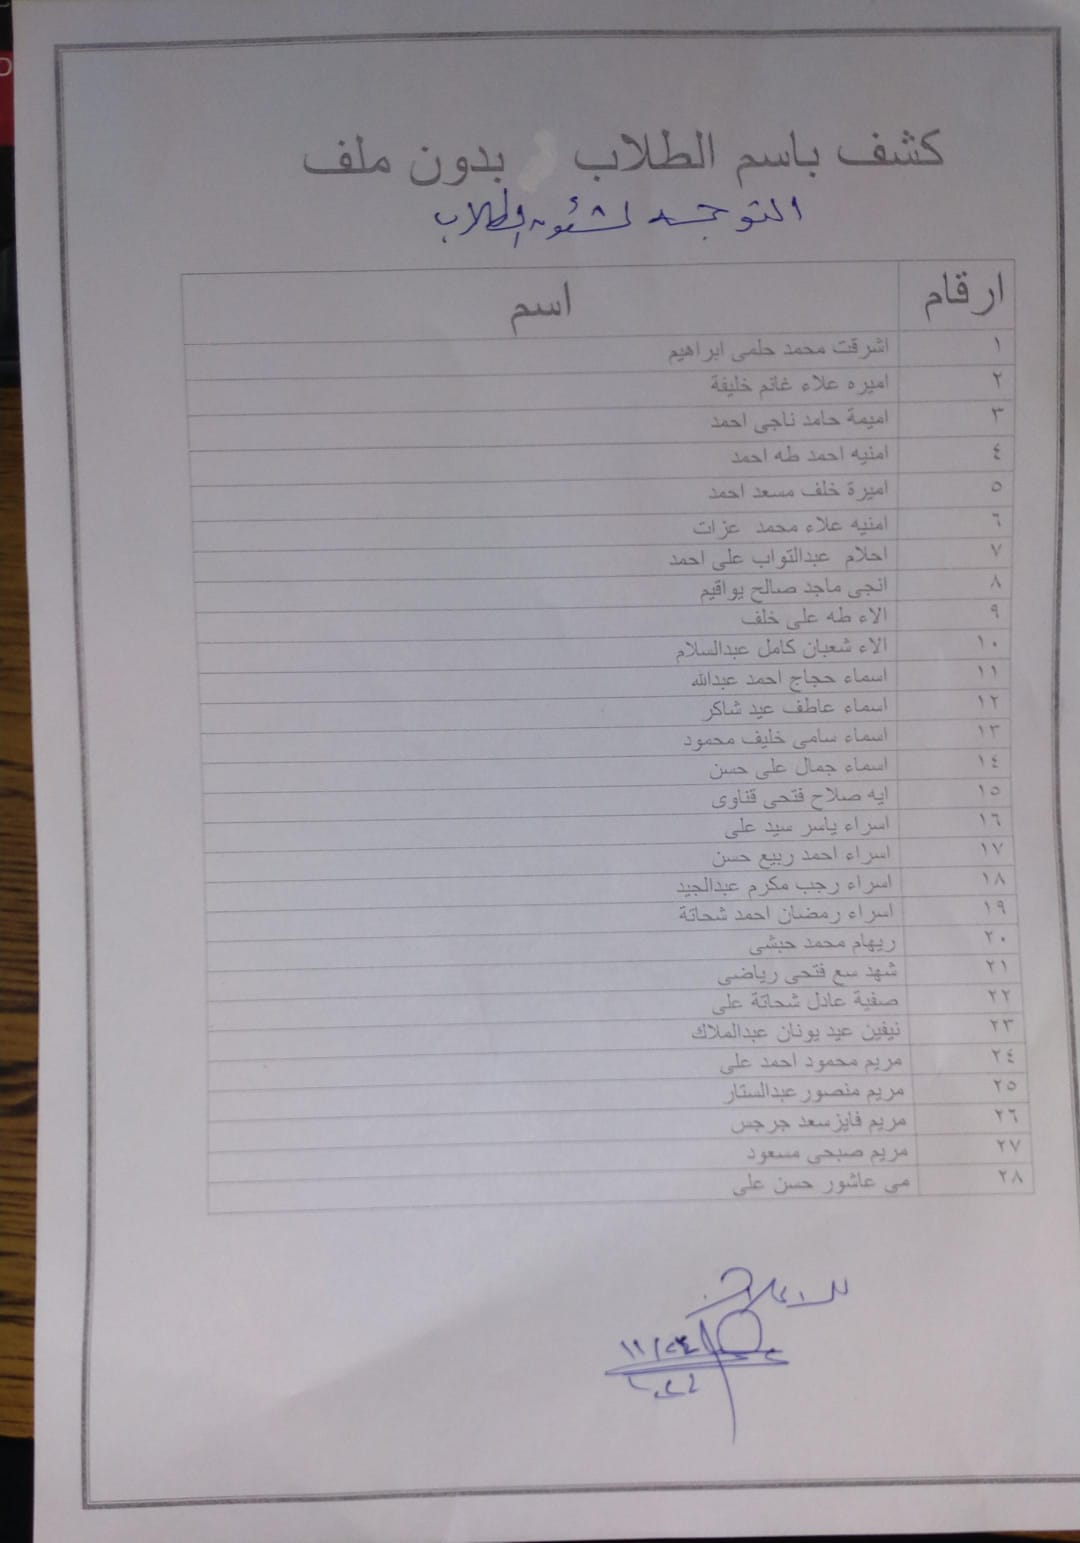 كشف باسم الطلاب بدون ملف
التوجه لشئون الطلاب
ارقام اسم
١ اشرقت محمد حلمى ابراهيم
٢ اميره علاء غانم خليفة
٣ اميمة حامد ناجى احمد
٤ امنيه احمد طه احمد
٥ اميرة خلف مسعد احمد
٦ امنيه علاء محمد عزات
٧ احلام عبدالتواب على احمد
٨ انجى ماجد صالح يواقيم
٩ الاء طه على خلف
١٠ الاء شعبان كامل عبدالسلام
١١ اسماء حجاج احمد عبدالله
١٢ اسماء عاطف عيد شاكر
١٣ اسماء سامى خليف محمود
١٤ اسماء جمال على حسن
١٥ ايه صلاح فتحى قناوى
١٦ اسراء ياسر سيد على
١٧ اسراء احمد ربيع حسن
١٨ اسراء رجب مكرم عبدالجيد
١٩ اسراء رمضان احمد شحاتة
٢٠ ريهام محمد حبشى
٢١ شهد سع فتحى رياضى
٢٢ صفية عادل شحاتة على
٢٣ نيفين عيد يونان عبدالملاك
٢٤ مريم محمود احمد على
٢٥ مريم منصور عبدالستار
٢٦ مريم فايزسعد جرجس
٢٧ مريم صبحى مسعود
٢٨ مى عاشور حسن على